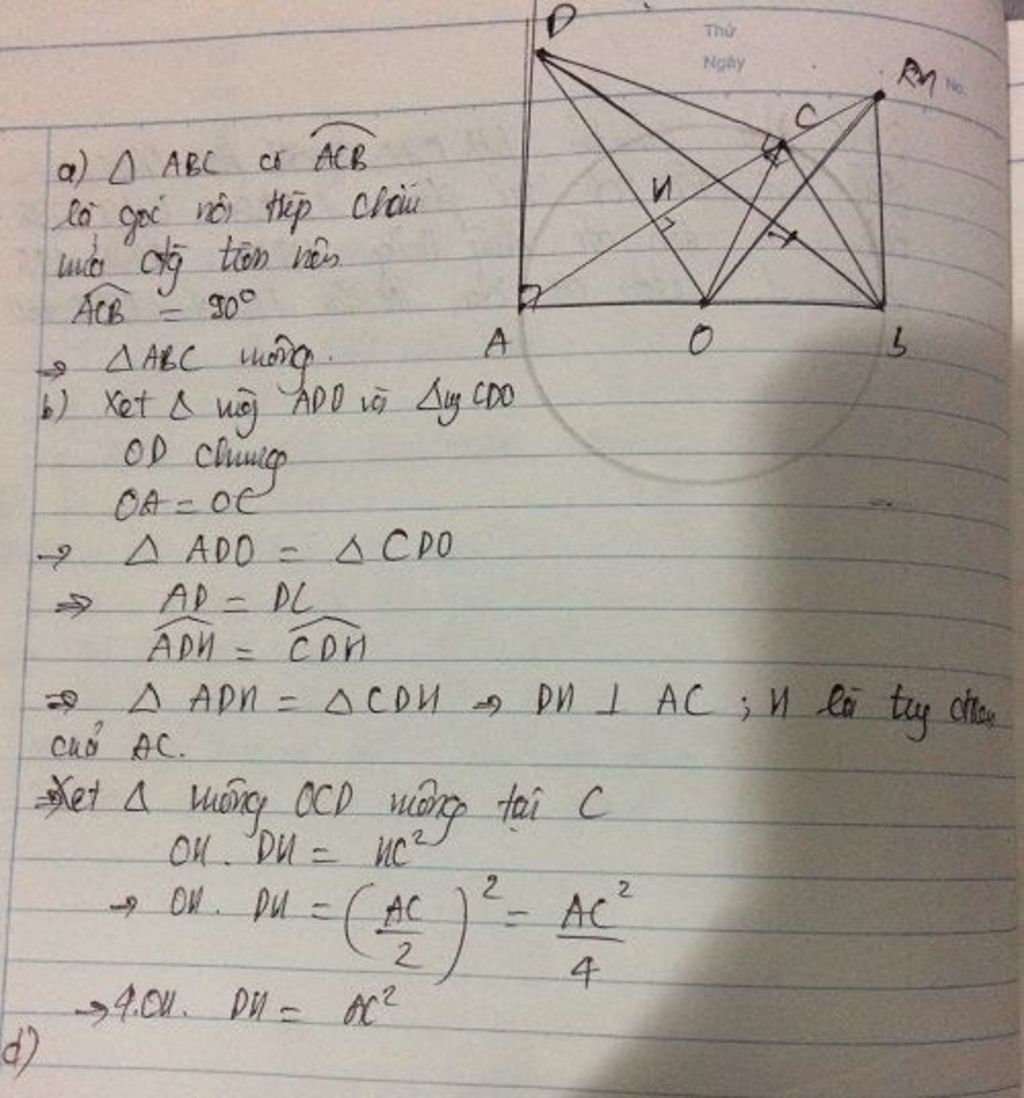 Thứ
Ngày
No.
D
M
C
H
A
O
B
a) Δ ABC có ACB
là góc nội tiếp chắn
nửa đg tròn nên
ACB = 90°
→ Δ ABC vuông.
b) Xet Δ vg ADO và Δvg CDO
OD chung
OA = OC
→ Δ ADO = Δ CDO
⇒ AD = DC
ADH = CDH
⇒ Δ ADH = Δ CDH → DH ⊥ AC ; H là
của AC.
⇒ Xet Δ vuông OCD vuông tại C
OH. DH = HC²
→ OH. DH = (AC/2)² = AC²/4
→ 4.OH. DH = AC²
d)